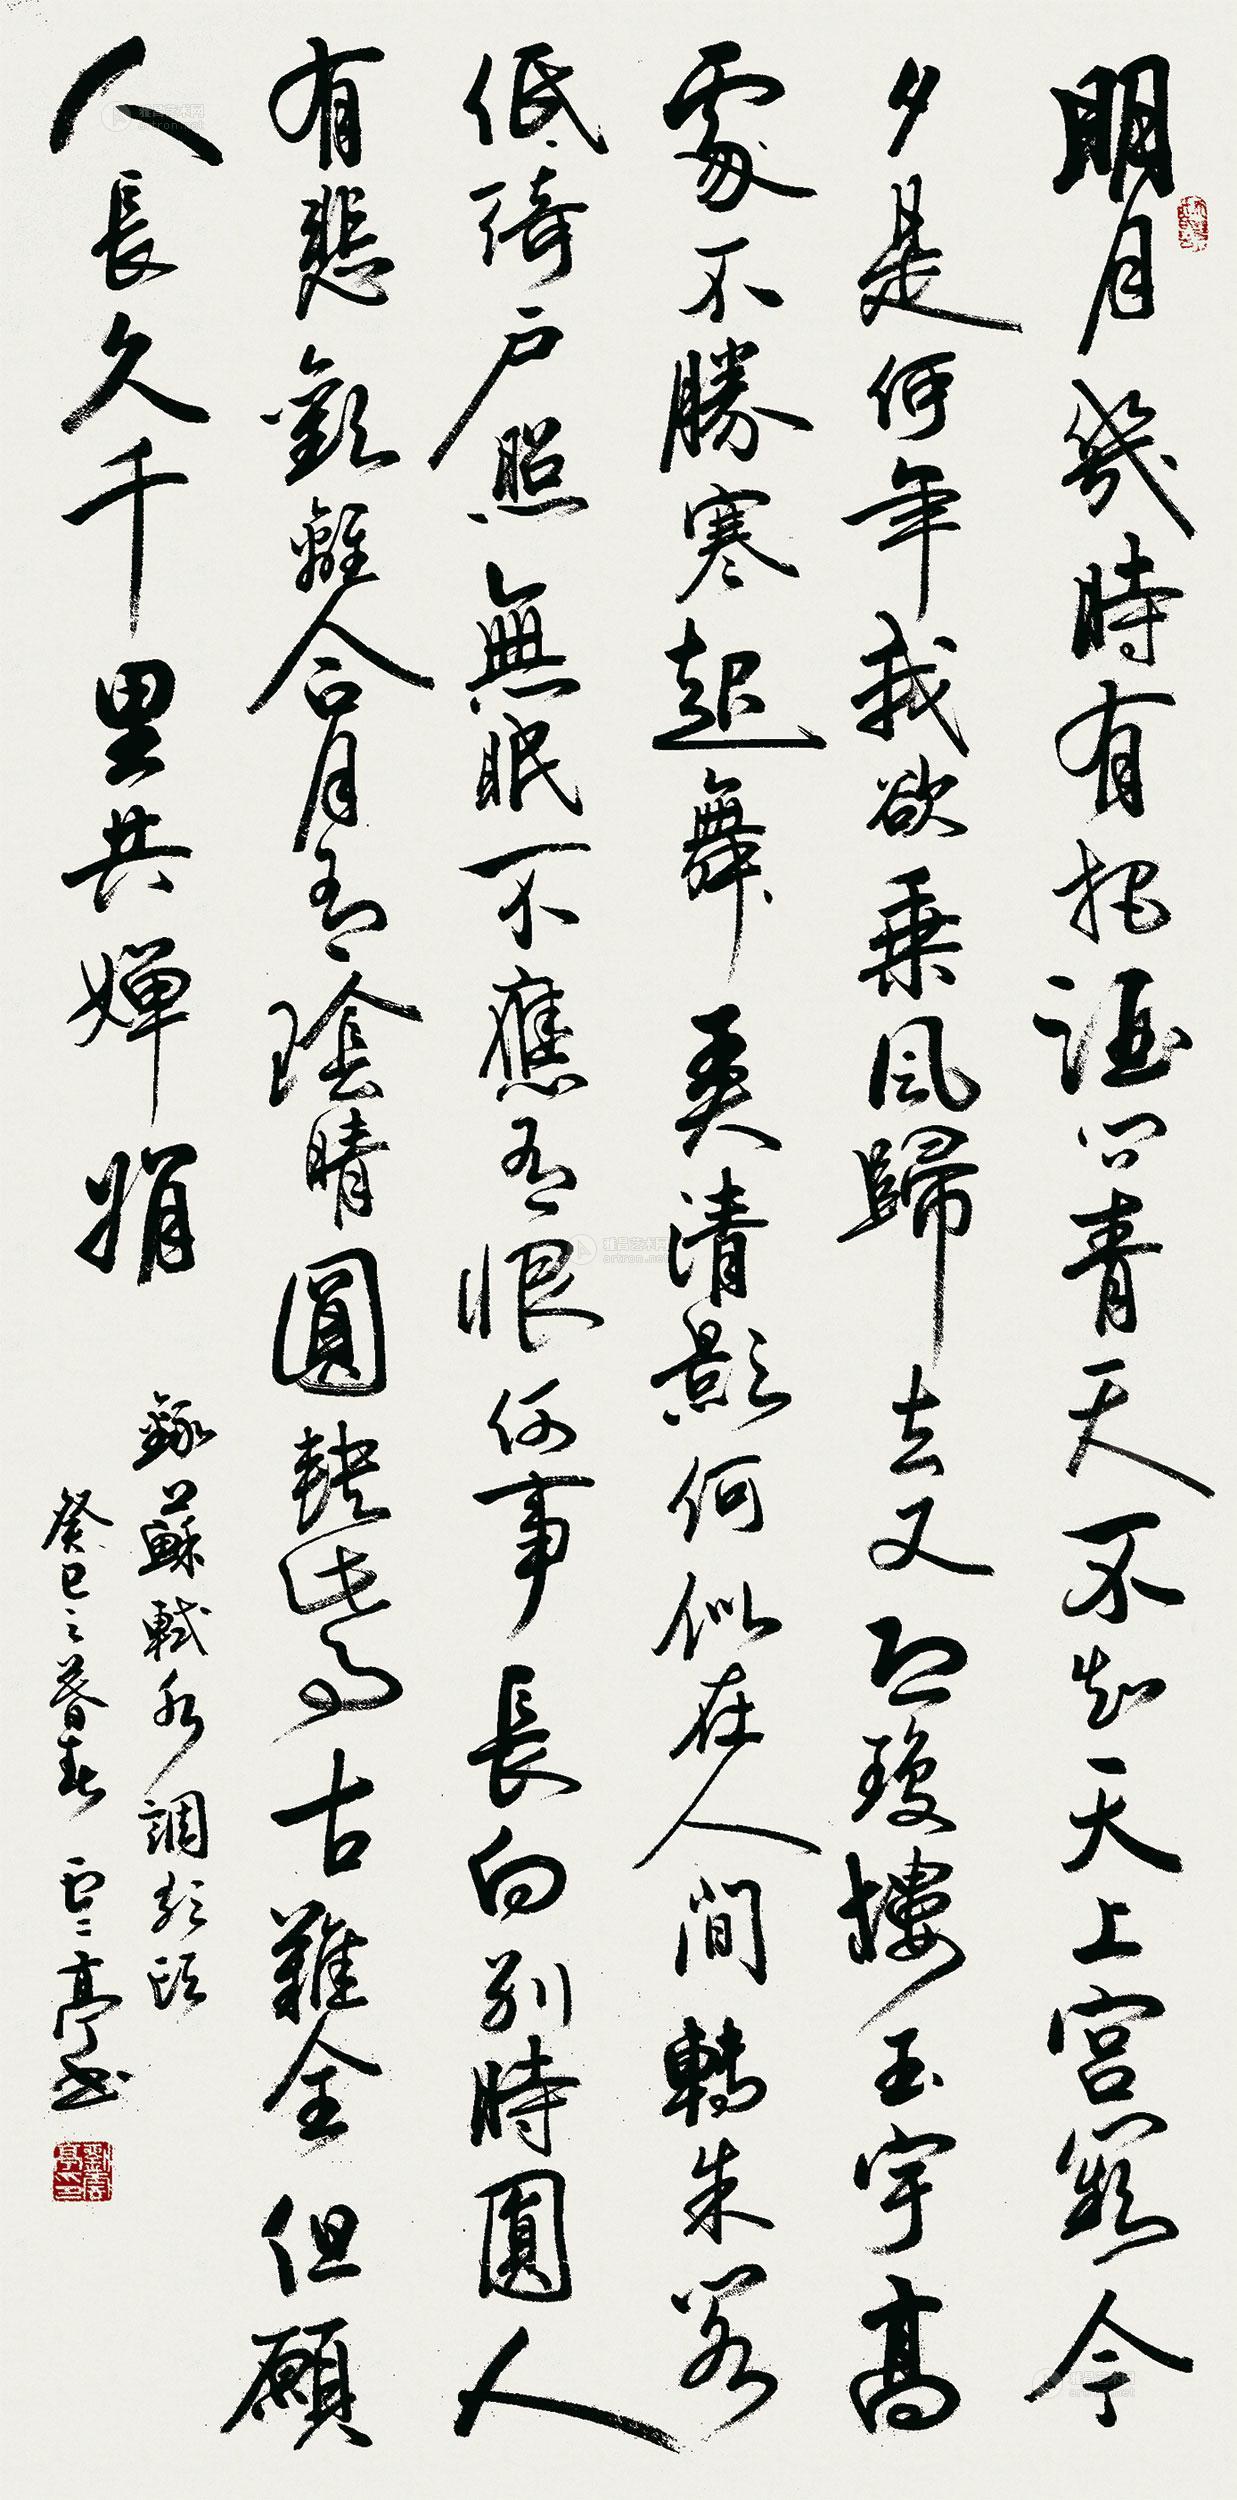 明月幾時有把酒問青天不知天上宮闕今
夕是何年我欲乘風歸去又恐瓊樓玉宇高
處不勝寒起舞弄清影何似在人間轉朱閣
低綺戶照無眠不應有恨何事長向別時圓人
有悲歡離合月有陰晴圓缺此事古難全但願
人長久千里共嬋娟
錄蘇軾水調歌頭
癸巳之暮春雲亭書
劉雲亭印